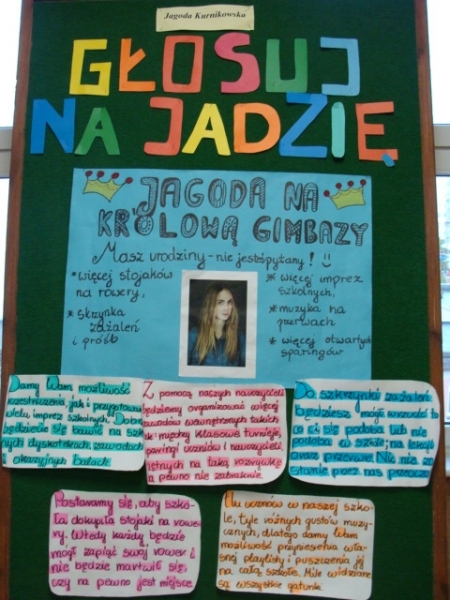 Jagoda Kurnikowska
GŁOSUJ
NA JADZIĘ
JAGODA NA
KRÓLOWĄ GIMBAZY
Masz urodziny - nie jesteś pytany!
* więcej stojaków
na rowery,
* skrzynka
zażaleń
i próśb
* więcej imprez
szkolnych,
* muzyka na
przerwach
* więcej otwartych
sparingów
Damy Wam możliwość
uczestniczenia, jak i przygotowa
wielu imprez szkolnych. Dobrze
będziecie się bawić na szko
nych dyskotekach, zawodach
okazyjnych balach
Z pomocą naszych nauczycieli
będziemy organizować więcej
zawodów wewnętrznych takich
jak: między klasowe turnieje,
sparingi uczniów i nauczycieli
na taką rozrywkę
a pewno nie zabraknie.
Do skrzynki zażaleń
będziesz mógł wrzucać to
co ci się podoba lub nie
podoba w szkole; na lekcji
oraz przerwie. Nic nie zo
stanie przez nas
Postaramy się, aby szko-
ła dokupiła stojaki na rowe-
ry. Wtedy każdy będzie
mógł zapiąć swój rower i
nie będzie martwił się,
czy na pewno jest miejsce.
Ilu uczniów w naszej szko-
le, tyle różnych gustów muzy-
cznych, dlatego damy Wam
możliwość przyniesienia wła-
snej playlisty i puszczenia jej
na całą szkołę. Mile widziane
są wszystkie gatunki.